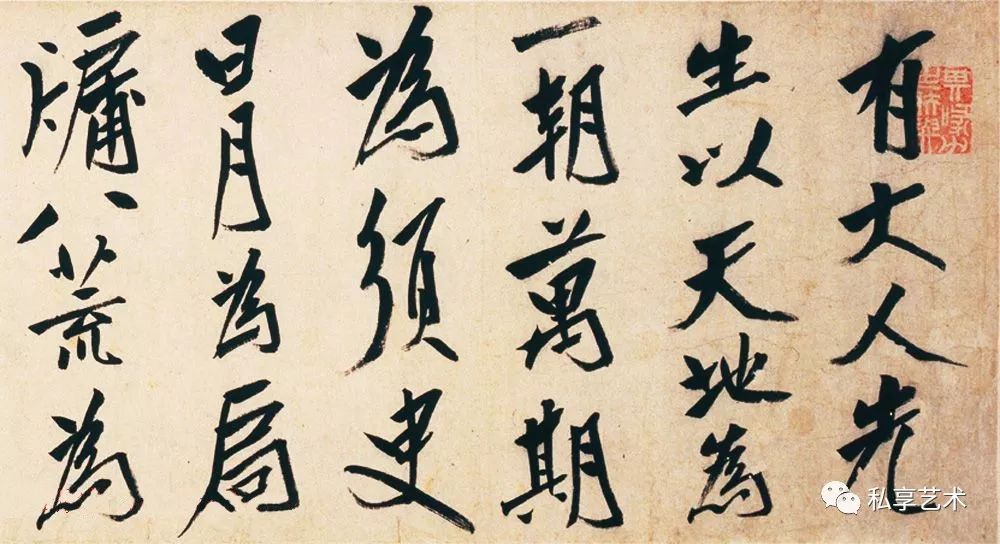 有大人先
生以天地為
一朝萬期
為須臾
日月為扃
牖八荒為
私享艺术